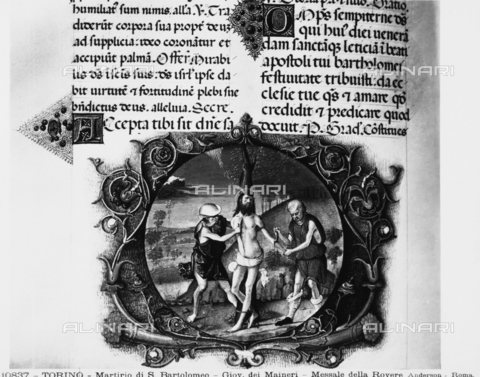 humiliat sum nimis. alla. V. Tra
diderūt corpora sua propt deuȝ
ad supplicia: ideo coronātur et
accipiūt palmā. Offer. Mirabi
dabit virtutē et fortitudinē plebi sue
bn̄dictus deus. alleluia. Secre.
Accepta tibi sit dn̄e sa
Oratio
OMps sempiterne ds̄
qui huiꝰ diei venerā
dam sanctāqȝ leticiā ī beati
apostoli tui bartholomei
festiuitate tribuisti: da ec
clesie tue qs̄ et amare qō
credidit et predicare quod
docuit. P.
ALINARI
ALINARI
ALINARI
ALINARI
ALINARI
ALINARI
10837 - TORINO - Martirio di S. Bartolomeo - Giov. dei Maineri - Messale della Rovere. Anderson - Roma.